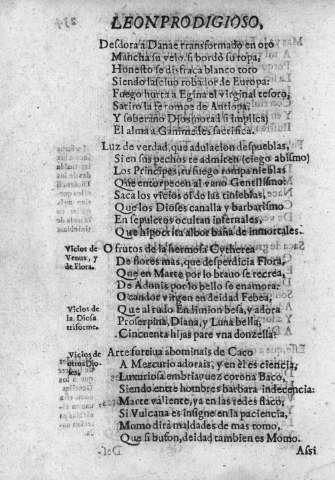 LEON PRODIGIOSO,
Desdora a Danae transformado en oro
Mancha su velo, si bordó su ropa,
Honesto se disfraça blanco toro
Siendo lascivo robador de Europa:
Fuego hurta a Egina el virginal tesoro,
Satiro la rompe de Antiopa,
Y soberano Dios (notad si implica)
El alma a Ganimedes sacrifica.
Luz de verdad, que adulacion despueblas,
Si en sus pechos te admiten (ciego abismo)
Los Principes, tu fuego rompa nieblas
Que entorpecen al vano Gentilismo:
Saca los vicios de las tinieblas,
Que los Dioses canalla y barbarismo
En sepulcros ocultan infernales,
Que hipocrita albor baña de inmortales.
Vicios de
Venus, y
de Flora.
O frutos de la hermosa Cytherea
De flores mas, que desperdicia Flora,
Que en Marte por lo bravo se recrea,
De Adonis por lo bello se enamora:
O candor virgen en deidad Febea,
Vicios de
la Diosa
triforme.
Que al rudo Endimion besa, y adora
Proserpina, Diana, y Luna bella,
Cincuenta hijas pare una donzella:
Vicios de
otros Dio-
ses.
Arte furtiua abominais de Caco
A Mercurio adorais, y en el es ciencia,
Luxuriosa embriaguez corona Baco,
Siendo entre hombres barbara indecencia:
Marte valiente, ya en las redes flaco,
Si Vulcano es insigne en la paciencia,
Momo dirá maldades de mas tomo,
Que si bufon, deidad tambien es Momo.
Assi